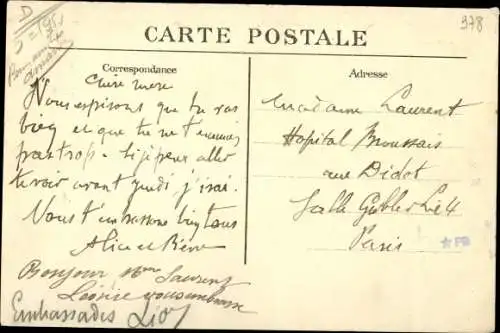 D
378
CARTE POSTALE
Correspondance
Adresse
Chère mère
Nous espérons que tu vas
bien et que tu ne t'ennuies
pas trop. Si je peux aller
te voir avant jeudi j'irai.
Nous t'embrassons bien tous
Alice et Pierre
Bonjour Mme Laurent
Embrassades
Madame Laurent
Hopital Broussais
rue Didot
Salle Gubler Lit 4
Paris
FB